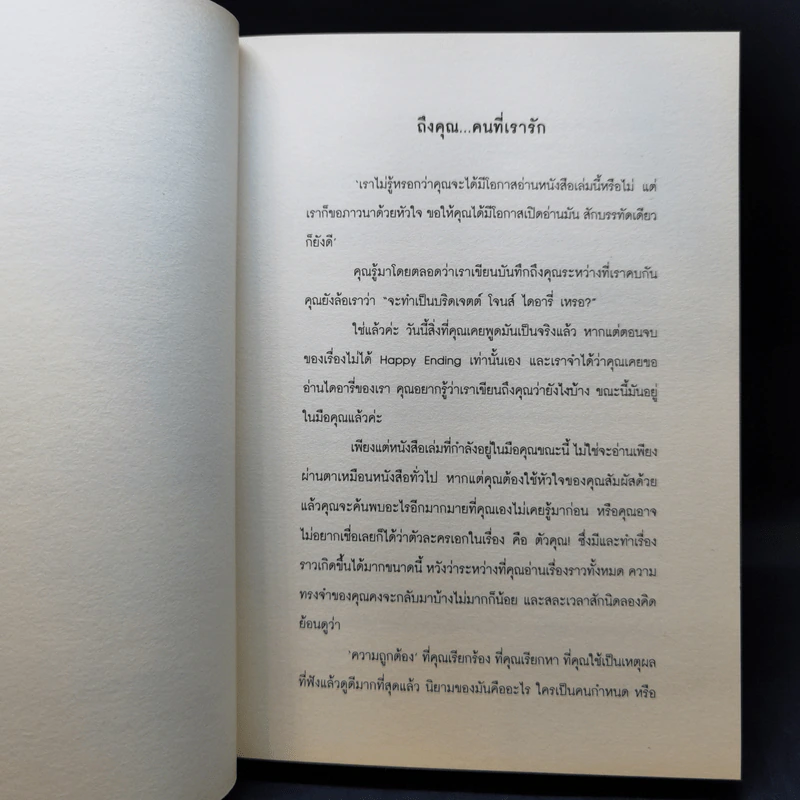 ถึงคุณ...คนที่เรารัก
'เราไม่รู้หรอกว่าคุณจะได้มีโอกาสอ่านหนังสือเล่มนี้หรือไม่ แต่
เราก็ขอภาวนาด้วยหัวใจ ขอให้คุณได้มีโอกาสเปิดอ่านมัน สักบรรทัดเดียว
ก็ยังดี'
คุณรู้มาโดยตลอดว่าเราเขียนบันทึกถึงคุณระหว่างที่เราคบกัน
คุณยังล้อเราว่า "จะทำเป็นบริดเจตต์ โจนส์ ไดอารี่ เหรอ?"
ใช่แล้วค่ะ วันนี้สิ่งที่คุณเคยพูดมันเป็นจริงแล้ว หากแต่ตอนจบ
ของเรื่องไม่ได้ Happy Ending เท่านั้นเอง และเราจำได้ว่าคุณเคยขอ
อ่านไดอารี่ของเรา คุณอยากรู้ว่าเราเขียนถึงคุณว่ายังไงบ้าง ขณะนี้มันอยู่
ในมือคุณแล้วค่ะ
เพียงแต่หนังสือเล่มที่กำลังอยู่ในมือคุณขณะนี้ ไม่ใช่จะอ่านเพียง
ผ่านตาเหมือนหนังสือทั่วไป หากแต่คุณต้องใช้หัวใจของคุณสัมผัสด้วย
แล้วคุณจะค้นพบอะไรอีกมากมายที่คุณเองไม่เคยรู้มาก่อน หรือคุณอาจ
ไม่อยากเชื่อเลยก็ได้ว่าตัวละครเอกในเรื่อง คือ ตัวคุณ! ซึ่งมีและทำเรื่อง
ราวเกิดขึ้นได้มากขนาดนี้ หวังว่าระหว่างที่คุณอ่านเรื่องราวทั้งหมด ความ
ทรงจำของคุณคงจะกลับมาบ้างไม่มากก็น้อย และสละเวลาสักนิดลองคิด
ย้อนดูว่า
'ความถูกต้อง' ที่คุณเรียกร้อง ที่คุณเรียกหา ที่คุณใช้เป็นเหตุผล
ที่ฟังแล้วดูดีมากที่สุดแล้ว นิยามของมันคืออะไร ใครเป็นคนกำหนด หรือ